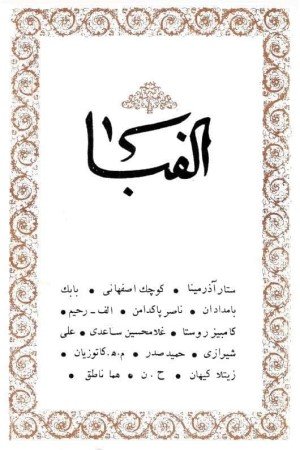 الفبا
۱
ستار آذرمینا • کوچک اصفهانی • بابک
بامدادان • ناصر پاکدامن • الف - رحیم •
کامبیز روستا • غلامحسین ساعدی • علی
شیرازی • حمید صدر • م.ه. کاتوزیان •
زیتلا کیهان • ح. ن • هما ناطق •